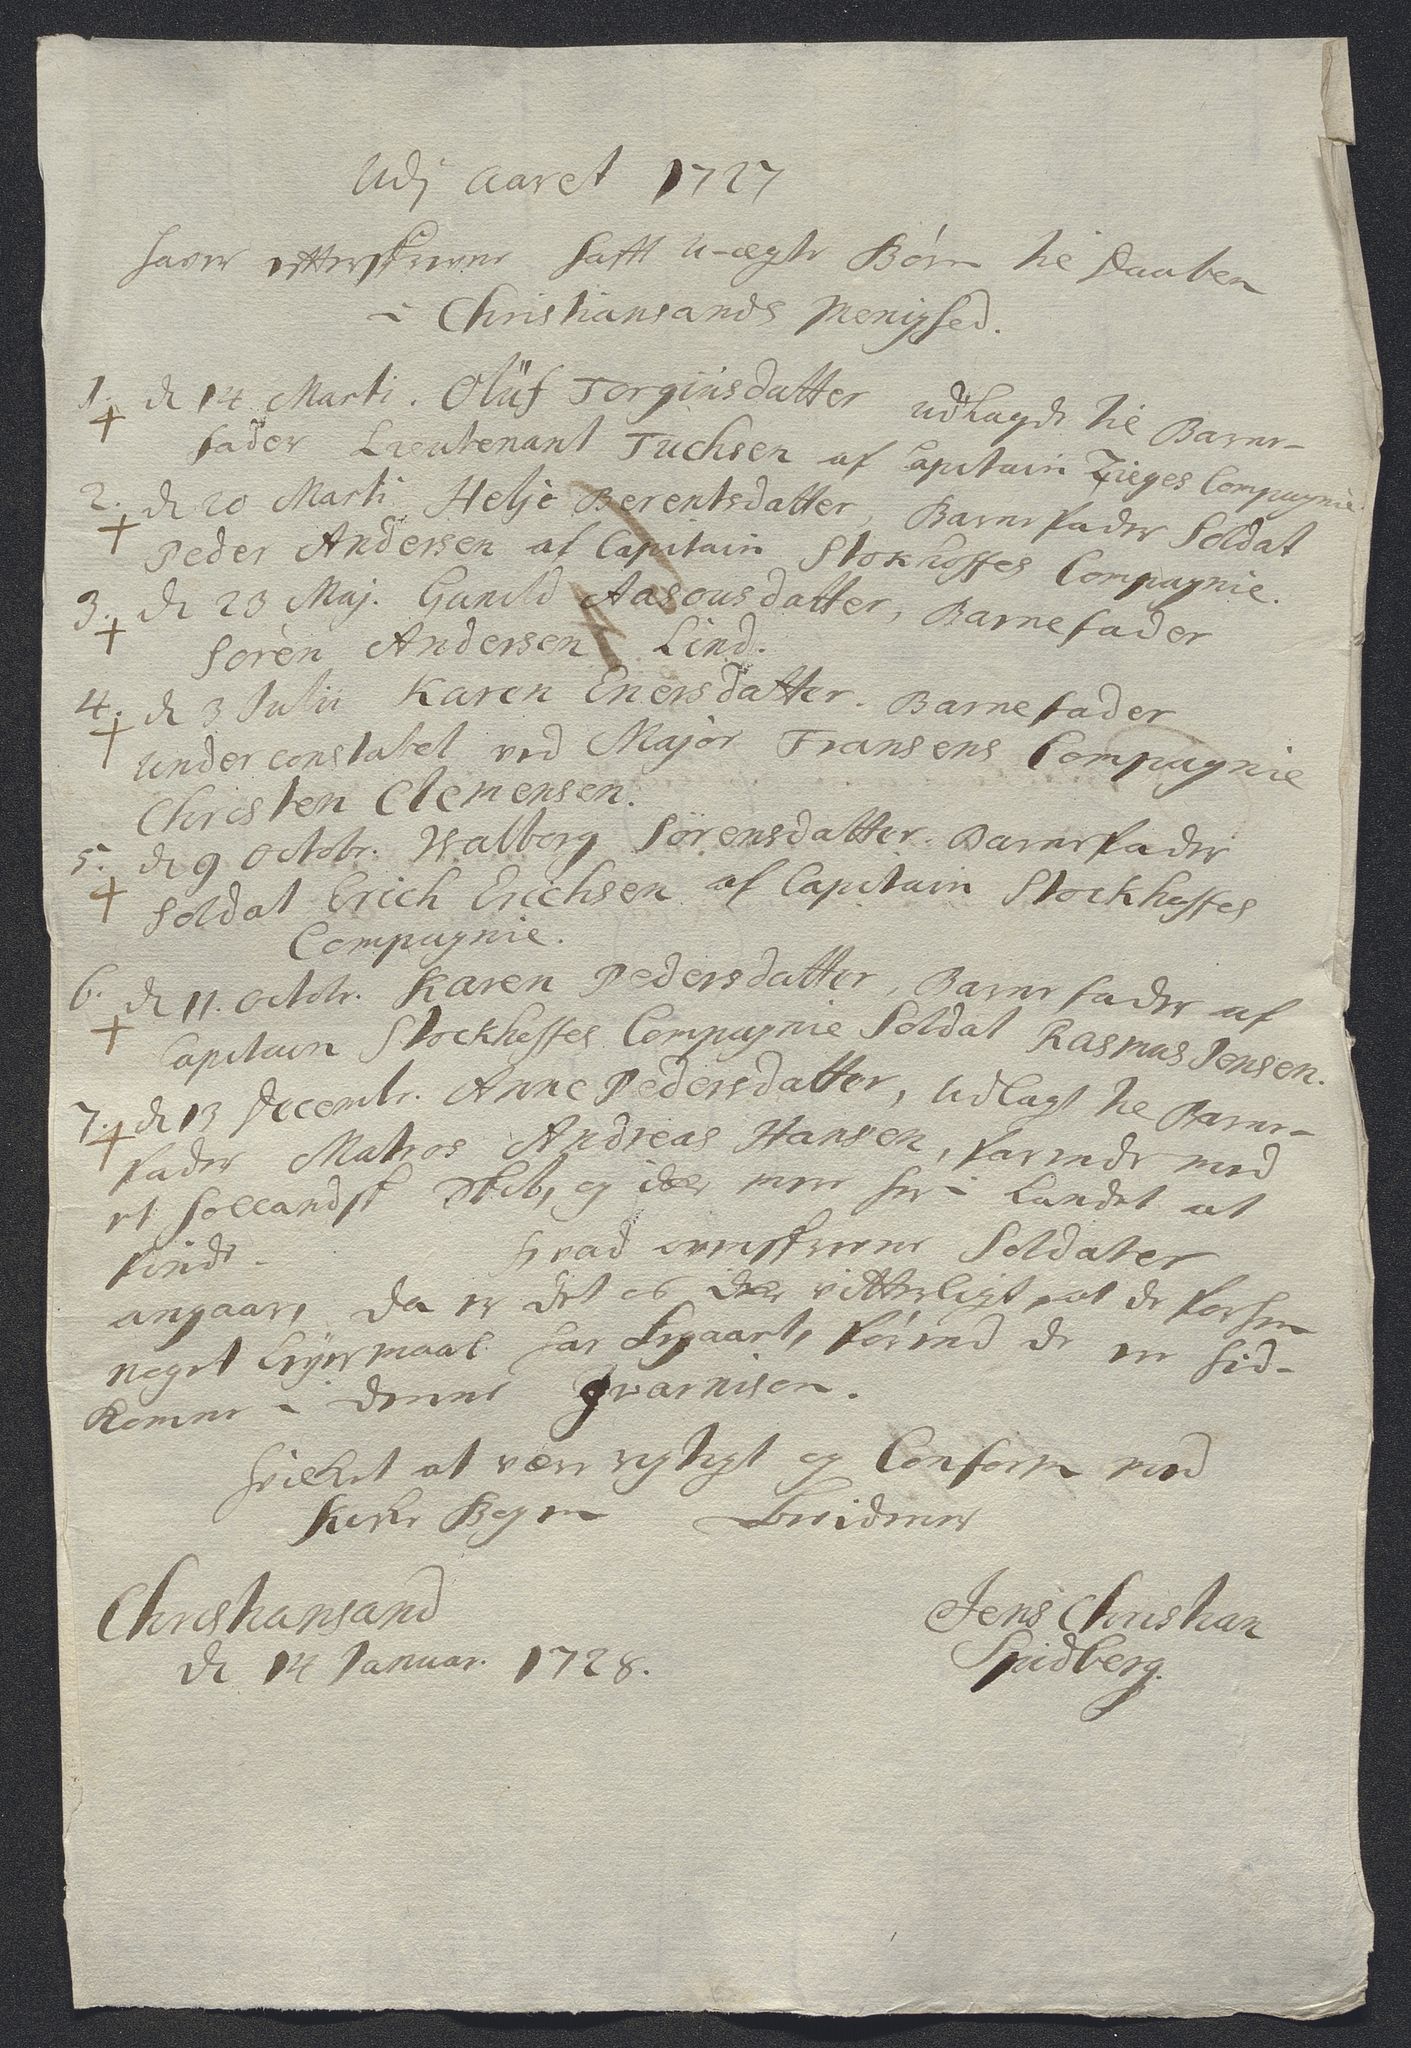 Udj Aaret 1727
haver efterskrevne hafft u-ægte Børn til Daaben
i Christiansands Menighed.
1. d 14 Marti. Olüf Torgiüsdatter udlagde til Barne-
fader Lieutenant Tüchsen af Capitain Zieges Compagnie
2. d 20 Marti Helje Berentsdatter, Barnefader Soldat
Peder Andersen af Capitain Stokhoffes Compagnie.
3. d 23 Maj. Gunild Aasousdatter, Barnefader
Søren Andersen Lind.
4. d 3 Julii Karen Enersdatter. Barnefader
Underconstabel ved Major Fransens Compagnie
Christen Clemensen.
5. d 9 Octobr. Walborg Sørensdatter. Barnefader
Soldat Erich Erichsen af Capitain Stockhoffes
Compagnie.
6. d 11. Octobr. Karen Pedersdatter, Barnefader af
Capitain Stockhoffes Compagnie Soldat Rasmus Jensen.
7. d 13 Decembr. Anne Pedersdatter, Udlagt til Barne-
fader Matros Andreas Hansen, farende med
et hollandsk Skib, og icke mere her i Landet at
finde. Hvad ovenskrevne Soldater
angaar, da er det os icke vitterligt, at de forhen
noget Leyermaal har begaaet, førend de ere hid-
komne i denne Gvarnison.
Hvilket at være rigtigt og Conform med
Kirke Bogen Bevidner
Christiansand
d 14 Januar. 1728.
Jens Christian
Spidberg.